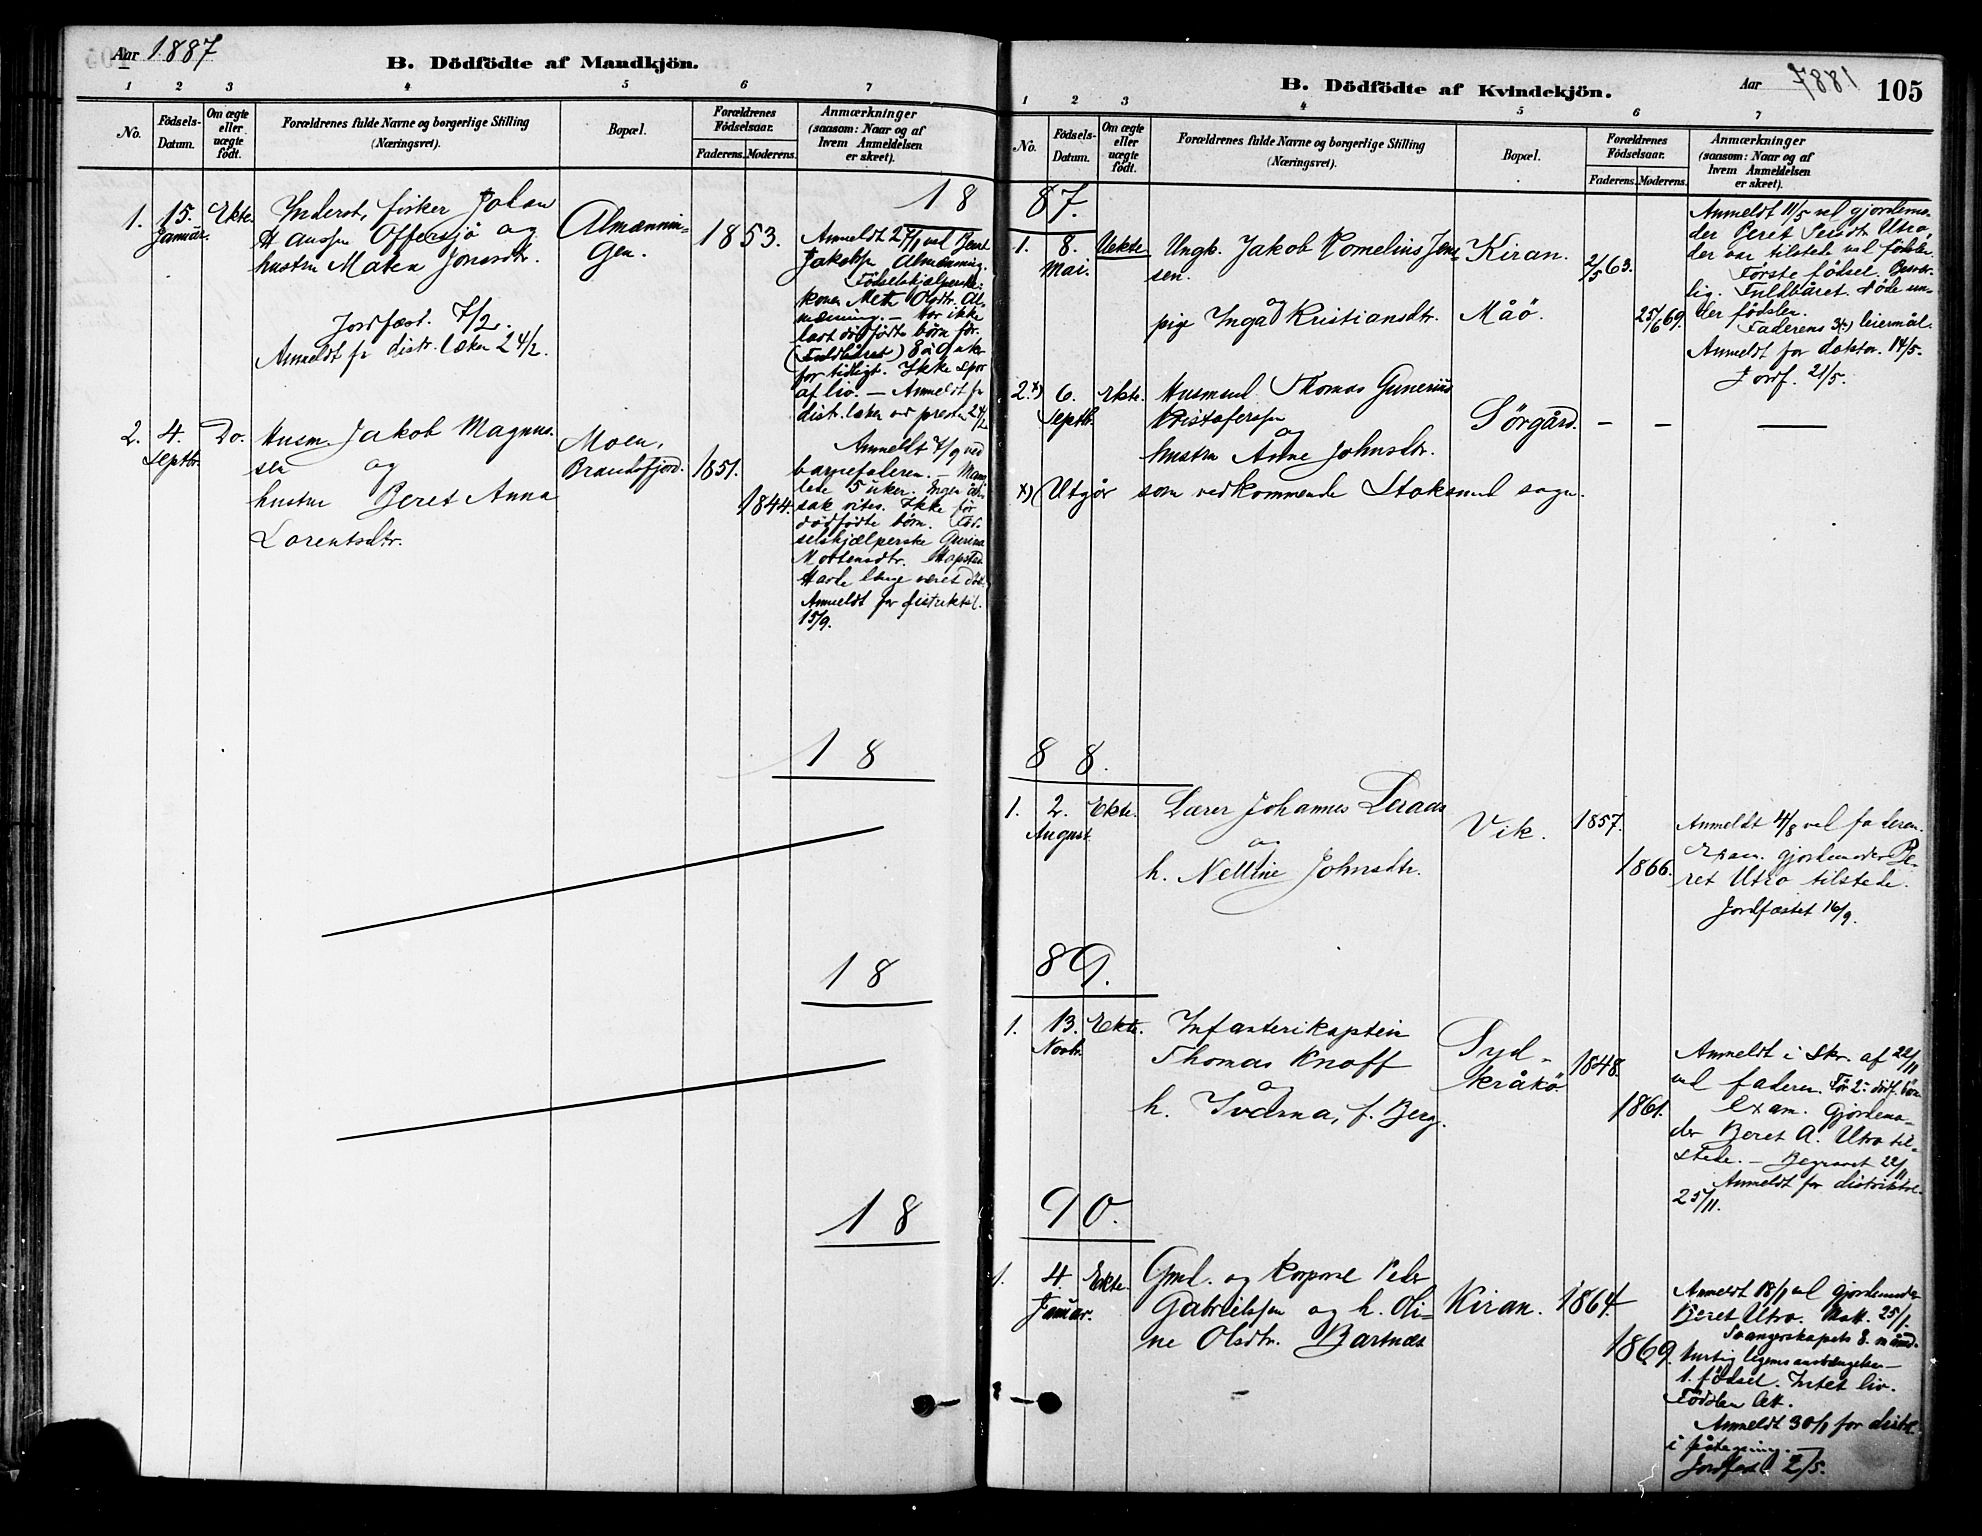 Aar 1887
B. Dödfödte af Mandkjön.
1 2 3 4 5 6 7
No.
Födsels-Datum.
Om ægte eller uægte födt.
Forældrenes fulde Navne og borgerlige Stilling
(Næringsvei).
Bopæl.
Forældrenes Födselsaar.
Faderens. Moderens.
Anmærkninger
(saasom: Naar og af
hvem Anmeldelsen
er skeet).
18
1. 15. Januar. Ekte.
Inderst, fisker Johan
Hanssen Offersjø og
hustru Maren Jonsdtr.
Jordfæst. 7/2.
Anmeldt fr distr. læker 24/2.
Almænnin-
gen.
1853.
Anmeldt 27/1 ved Bernt
Jakobss. Almenning.
Fødselshjælperske:
kone Mette Olsdtr. Al-
mænning. — har ikke
havt dødfødte børn før.
(Fuldbåret) 8 à 9 uker
for tidligt. Ikke spor
af liv. — Anmeldt fr
distr. læker ved presten 24/2
2. 4. Septbr. Do.
Husm. Jakob Magnus-
sen og
hustru Beret Anna
Lorentsdtr.
Moen,
Brandsfjord.
1851.
1844.
Anmeldt 7/9 ved
barnefaderen. — Mang-
lede 5 uker. Ingen år-
sak vites. Ikke før
dødfødte børn. Fød-
selshjælperske Gurina
Mortensdtr. Hopstad
Havde længe været død.
Anmeldt for distriktsl.
15/9.
18
18
18
B. Dödfödte af Kvindekjön.
Aar 1887
105
1 2 3 4 5 6 7
No.
Födsels-Datum.
Om ægte eller uægte födt.
Forældrenes fulde Navne og borgerlige Stilling
(Næringsvei).
Bopæl.
Forældrenes Födselsaar.
Faderens. Moderens.
Anmærkninger
(saasom: Naar og af
hvem Anmeldelsen
er skeet).
87.
1. 8. Mai. Uekte.
Ungk. Jakob Kornelius Jen-
sen.
og
pige Inga Kristiansdtr.
Kiran.
Måö.
2/5 63.
25/6 69.
Anmeldt 11/5 ved gjordemo-
der Beret Utro,
der var tilstede ved fødslen.
Første fødsel. Besvær-
lig. Fuldbåret. Døde un-
der fødslen.
Faderens 3(?) leiermål.
Anmeldt for doktor. 14/5.
Jordf. 21/5.
2.x) 6. Septbr. Ekte.
Husmand Thomas Gunerius
Kristofersen
og
hustru Anne Johnsdtr.
Sörgård. — — —
x) Utgår som vedkommende Stoksund sogn.
88.
1. 2. August. Ekte.
Lærer Johannes Leraas
og
h. Nelline Johnsdtr.
Vik.
1857.
1866.
Anmeldt 4/8 ved faderen.
Exam. gjordemoder Be-
ret Utro tilstede.
Jordfæstet 16/9.
89.
1. 13. Novbr. Ekte.
Infanterikaptein
Thomas Knoff
og
h. Iverna, f. Berg.
Syd-
kråkö
1848.
1861.
Anmeldt i skr. af 22/11
ved faderen. Før 2: dödf. börn
Exam. Gjordemo-
der Beret A. Utro til-
stede. — Begravet 22/11
Anmeldt for distriktsl.
25/11.
90.
1. 4. Januar. Ekte.
Gml. og korporal Peder
Gabrielssen og h. Oli-
ne Olsdtr. Bartnæs
Kiran.
1864.
1869.
Anmeldt 18/1 ved gjordemoder
Beret Utro. 25/1.
Svangerskapets 8. måned.
hurtig legems anstrængelse —
1. fødsel. Intet liv.
Fødslen let.
Anmeldt 30/1 for distr.l.
i påtegning. —
Jordfæst 2/5.